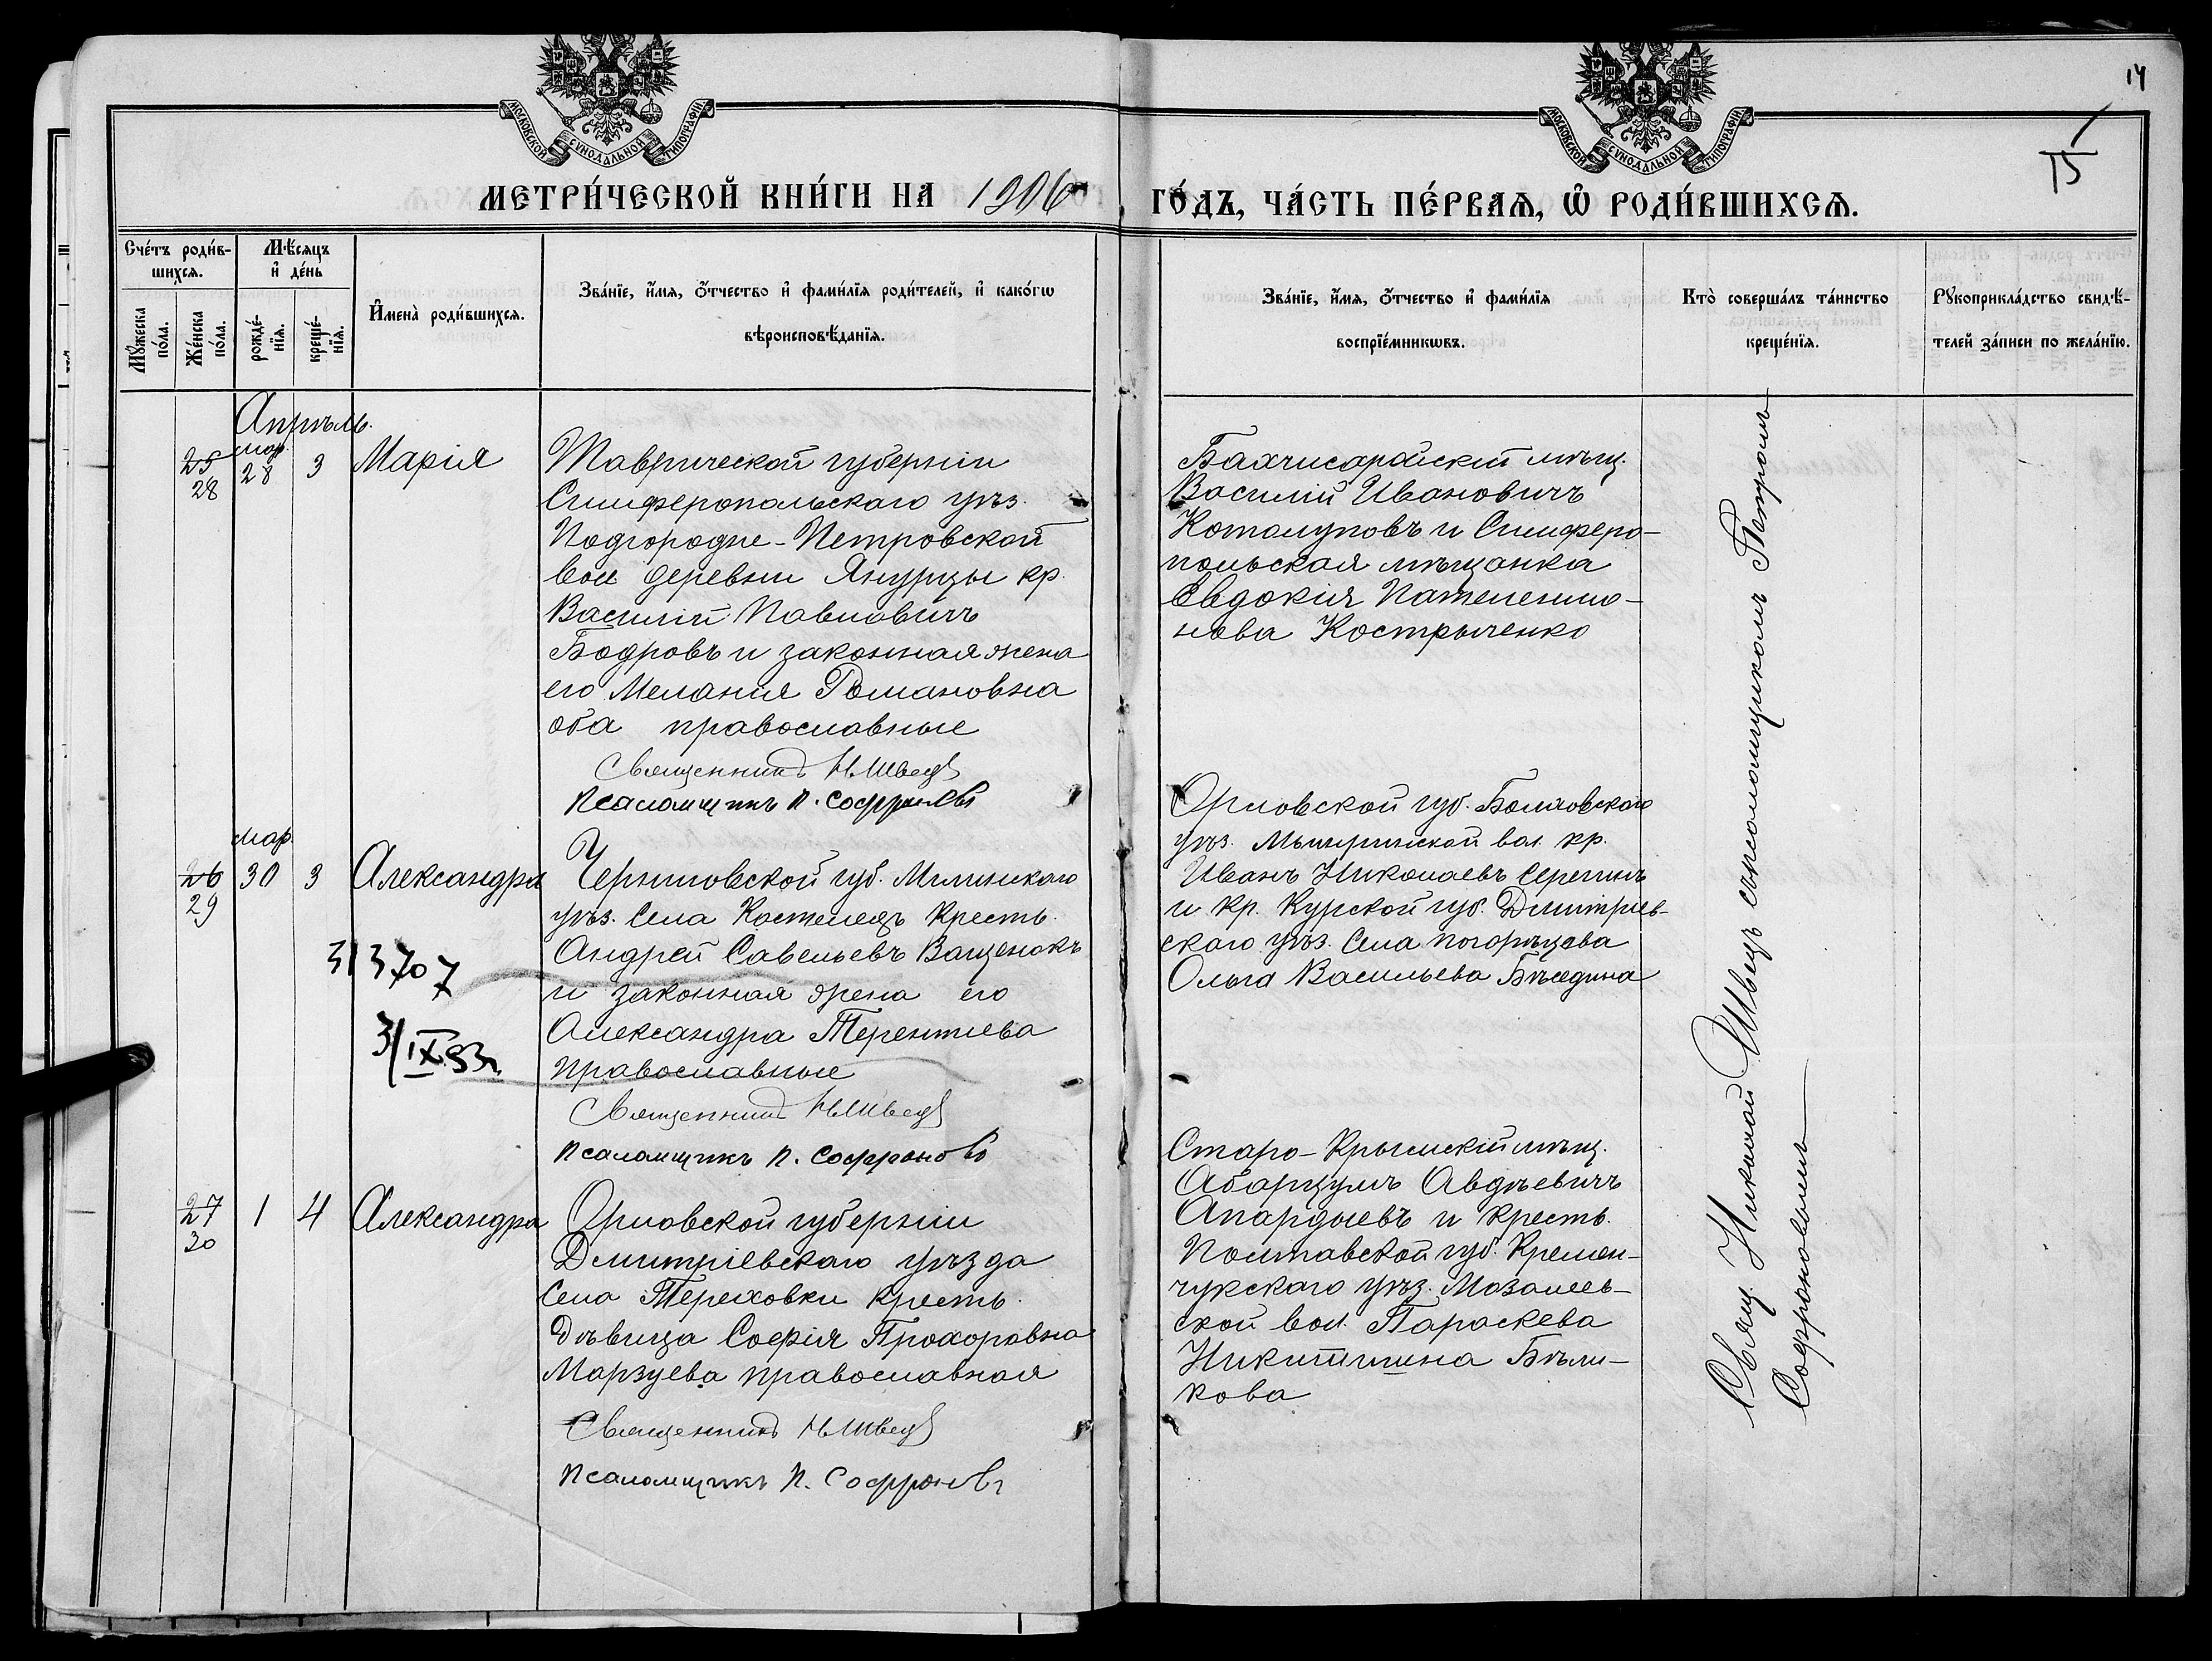 14
15
МОСКОВСКОЙ СѴНОДАЛЬНОЙ ТИПОГРАФІИ
МОСКОВСКОЙ СѴНОДАЛЬНОЙ ТИПОГРАФІИ
МЕТРИ́ЧЕСКОЙ КНИ́ГИ НА 1906 ГО́ДЪ, ЧА́СТЬ ПЕ́РВАѦ, Ѽ РОДИ́ВШИХСѦ.
Сче́тъ роди́в-
шихсѧ.
Мꙋ́жеска по́ла.
Же́нска по́ла.
Мѣ́сѧцъ
и҆ де́нь
рожде́-
нїѧ.
креще́-
нїѧ.
И҆мена̀ роди́вшихсѧ.
Зва́нїе, и҆́мѧ, ѻ҆́тчество и҆ фами́лїѧ роди́телей, и҆ како́гѡ
вѣроисповѣ́данїѧ.
Зва́нїе, и҆́мѧ, ѻ҆́тчество и҆ фами́лїѧ
воспрїе́мникѡвъ.
Кто̀ соверша́лъ та́инство
креще́нїѧ.
Рꙋкоприкла́дство свидѣ́-
телей за́писи по жела́нїю.
Апрѣль.
25
28
мар.
28
3
Марія
Таврической губерніи
Симферопольскаго уѣз.
Подгородне-Петровской
вол деревни Янурцы кр.
Василій Павловичъ
Бодровъ и законная жена
его Меланія Романовна
оба православные
Священникъ Н. Швецъ
Псаломщикъ П. Софроновъ
Бахчисарайскій мѣщ.
Василій Ивановичъ
Котолуповъ и Симферо-
польская мѣщанка
Евдокія Пателеимо-
нова Костыренко
26
29
мар.
30
3
Александра
Черниговской губ. Мглинскаго
уѣз. Села Костелецъ Кресть.
Андрей Савельевъ Ващенокъ
и законная жена его
Александра Терентіева
православные
Священникъ Н. Швецъ
Псаломщикъ П. Софроновъ
313707
3/IX 53 г.
Орловской губ. Болховскаго
уѣз. вол. кр.
Иванъ Николаевъ Серегинъ
и кр. Курской губ. Дмитріев-
скаго уѣз. Села Погорѣлова
Ольга Васильева Бѣседина
27
30
1
4
Александра
Орловской губерніи
Дмитріевскаго уѣзда
Села Тереховки Кресть.
дѣвица Софія Прохоровна
Марзуева православная
Священникъ Н. Швецъ
Псаломщикъ П. Софроновъ
Старо-Крымскій мѣщ.
Абарцумъ Авдѣевичъ
Апардыевъ и Кресть.
Полтавской губ. Кремен-
чукскаго уѣз. Мозолеев-
ской вол. Параскева
Никитишна Бѣли-
кова
Свящ. Николай Швецъ съ псаломщикомъ Петромъ
Софроновымъ